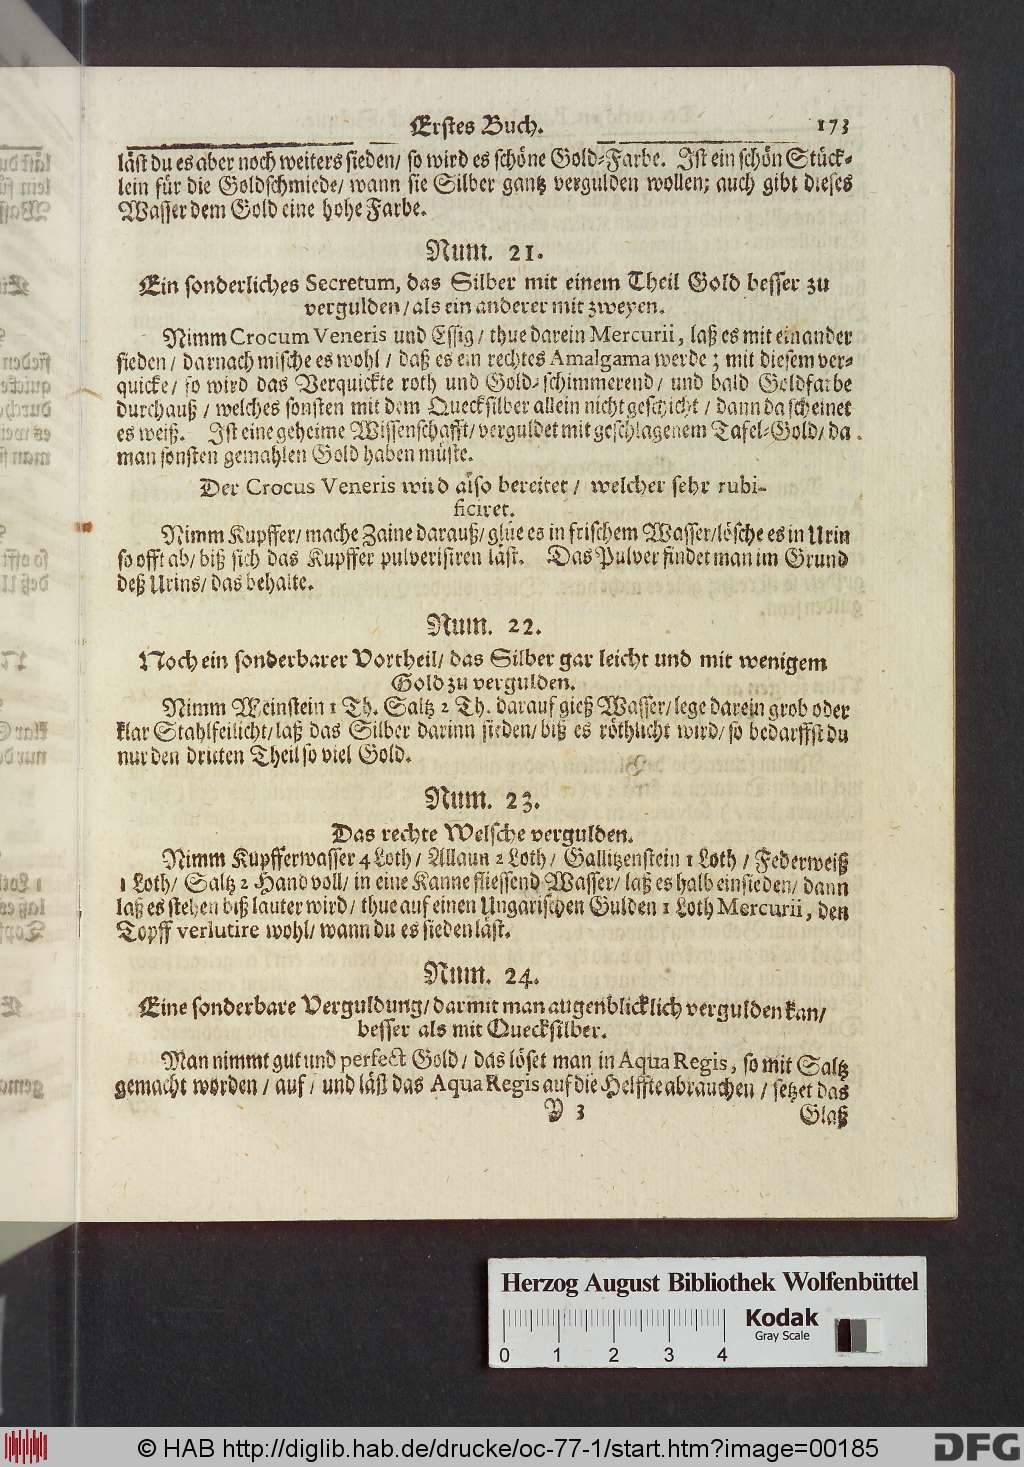 Erstes Buch. 173
läst du es aber noch weiters sieden/ so wird es schöne Gold-Farbe. Ist ein schön Stück-
lein für die Goldschmiede/ wann sie Silber gantz vergulden wollen; auch gibt dieses
Wasser dem Gold eine hohe Farbe.
Num. 21.
Ein sonderliches Secretum, das Silber mit einem Theil Gold besser zu
vergulden/ als ein anderer mit zweyen.
Nimm Crocum Veneris und Essig/ thue darein Mercurii, laß es mit einander
sieden/ darnach mische es wohl/ daß es ein rechtes Amalgama werde; mit diesem ver-
quicke/ so wird das Verquickte roth und Gold-schimmerend/ und bald Goldfarbe
durchauß/ welches sonsten mit dem Quecksilber allein nicht geschicht/ dann da scheinet
es weiß. Ist eine geheime Wissenschafft/ verguldet mit geschlagenem Tafel-Gold/ da
man sonsten gemahlen Gold haben müste.
Der Crocus Veneris wird also bereitet/ welcher sehr rubi-
ficiret.
Nimm Kupffer/ mache Zaine darauß/ glüe es in frischem Wasser/ lösche es in Urin
so offt ab/ biß sich das Kupffer pulverisiren läst. Das Pulver findet man im Grund
deß Urins/ das behalte.
Num. 22.
Noch ein sonderbarer Vortheil/ das Silber gar leicht und mit wenigem
Gold zu vergulden.
Nimm Weinstein 1 Th. Saltz 2 Th. darauf gieß Wasser/ lege darein grob oder
klar Stahlfeilicht/ laß das Silber darinn sieden/ biß es röthlicht wird/ so bedarffst du
nur den dritten Theil so viel Gold.
Num. 23.
Das rechte Welsche vergulden.
Nimm Kupfferwasser 4 Loth/ Allaun 2 Loth/ Gallitzenstein 1 Loth/ Federweiß
1 Loth/ Saltz 2 Hand voll/ in eine Kanne fliessend Wasser/ laß es halb einsieden/ dann
laß es stehen biß lauter wird/ thue auf einen Ungarischen Gulden 1 Loth Mercurii, den
Topff verlutire wohl/ wann du es sieden läst.
Num. 24.
Eine sonderbare Verguldung/ darmit man augenblicklich vergulden kan/
besser als mit Quecksilber.
Man nimmt gut und perfect Gold/ das löset man in Aqua Regis, so mit Saltz
gemacht worden/ auf/ und läst das Aqua Regis auf die Helffte abrauchen/ setzet das
Y 3 Glaß
Herzog August Bibliothek Wolfenbüttel
Kodak
Gray Scale
0 1 2 3 4
© HAB http://diglib.hab.de/drucke/oc-77-1/start.htm?image=00185
DFG